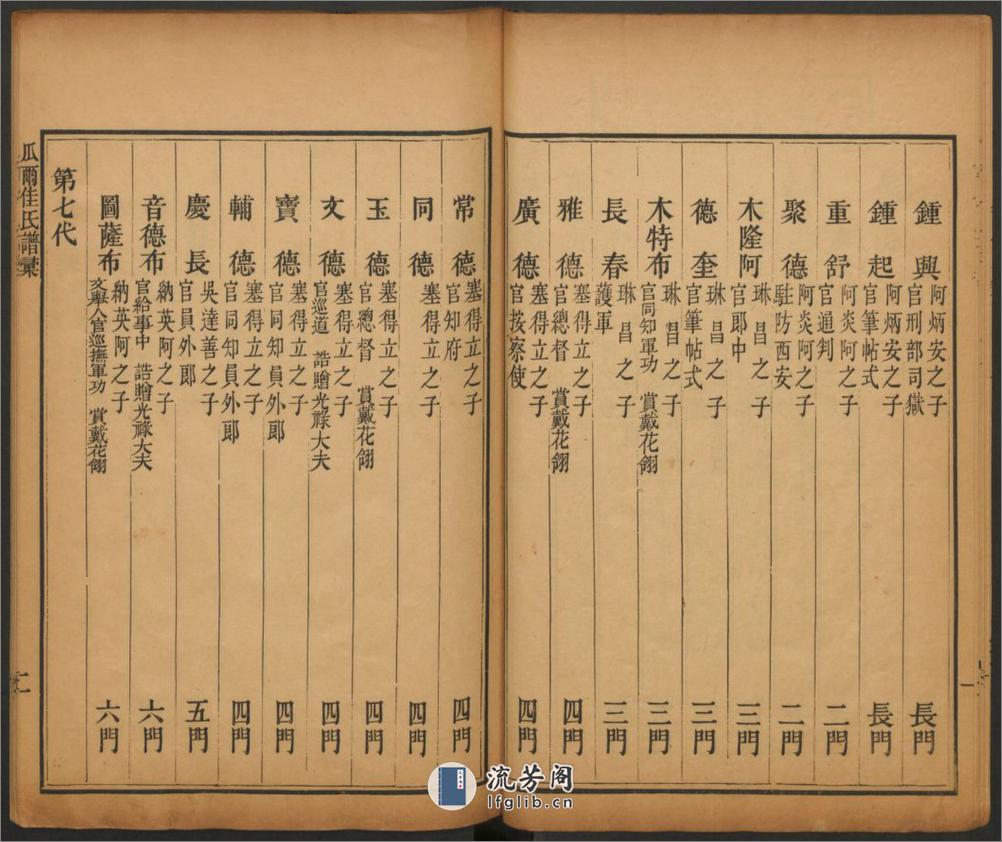 鍾興 阿炳安之子 官刑部司獄 長門
鍾起 阿炳安之子 官筆帖式 長門
重舒 阿炎阿之子 官通判 二門
聚德 阿炎阿之子 駐防西安 二門
木隆阿 琳昌之子 官郎中 三門
德奎 琳昌之子 官筆帖式 三門
木特布 琳昌之子 官同知軍功 賞戴花翎 三門
長春 琳昌之子 護軍 三門
雅德 塞得立之子 官總督 賞戴花翎 四門
廣德 塞得立之子 官按察使 四門
常德 塞得立之子 官知府 四門
同德 塞得立之子 四門
玉德 塞得立之子 官總督 賞戴花翎 四門
文德 塞得立之子 官巡道 誥贈光祿大夫 四門
寶德 塞得立之子 官同知員外郎 四門
輔德 塞得立之子 官同知員外郎 四門
慶長 吳達善之子 官員外郎 五門
音德布 納英阿之子 官給事中 誥贈光祿大夫 六門
圖薩布 納英阿之子 文舉人官巡撫軍功 賞戴花翎 六門
第七代
瓜爾佳氏譜彙
流芳阁
lfglib.cn